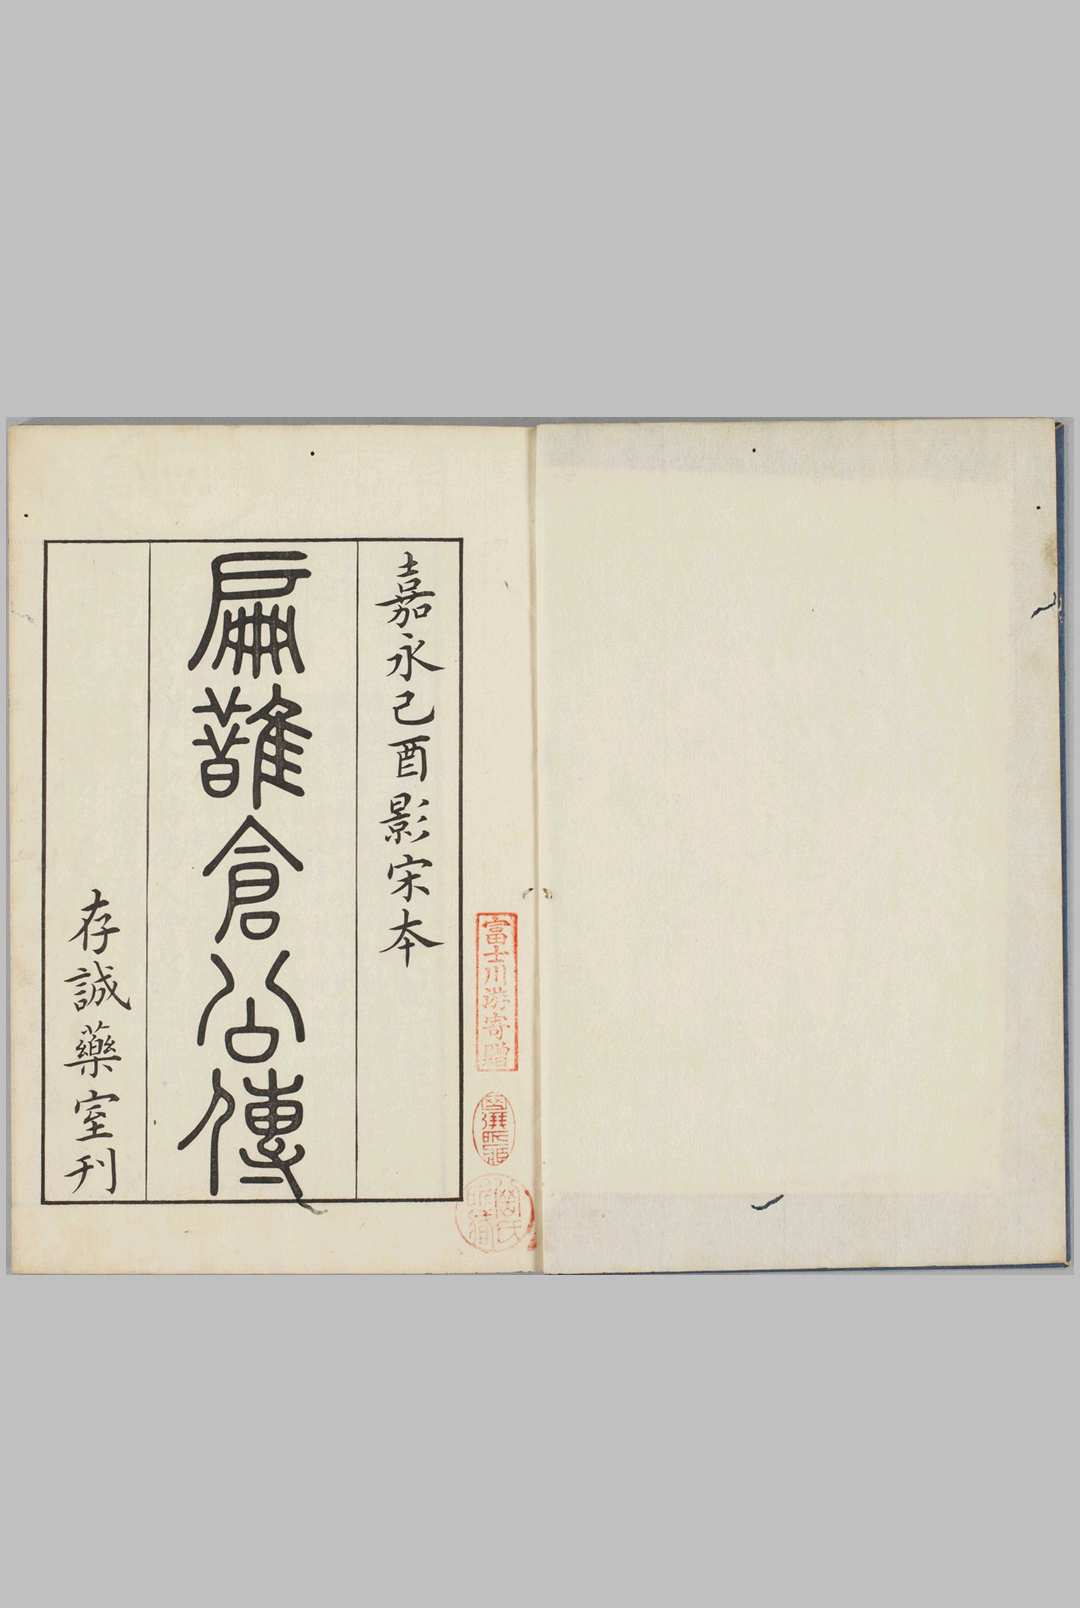 嘉永己酉影宋本
扁鵲倉公傳
存誠藥室刊
富士川游寄贈